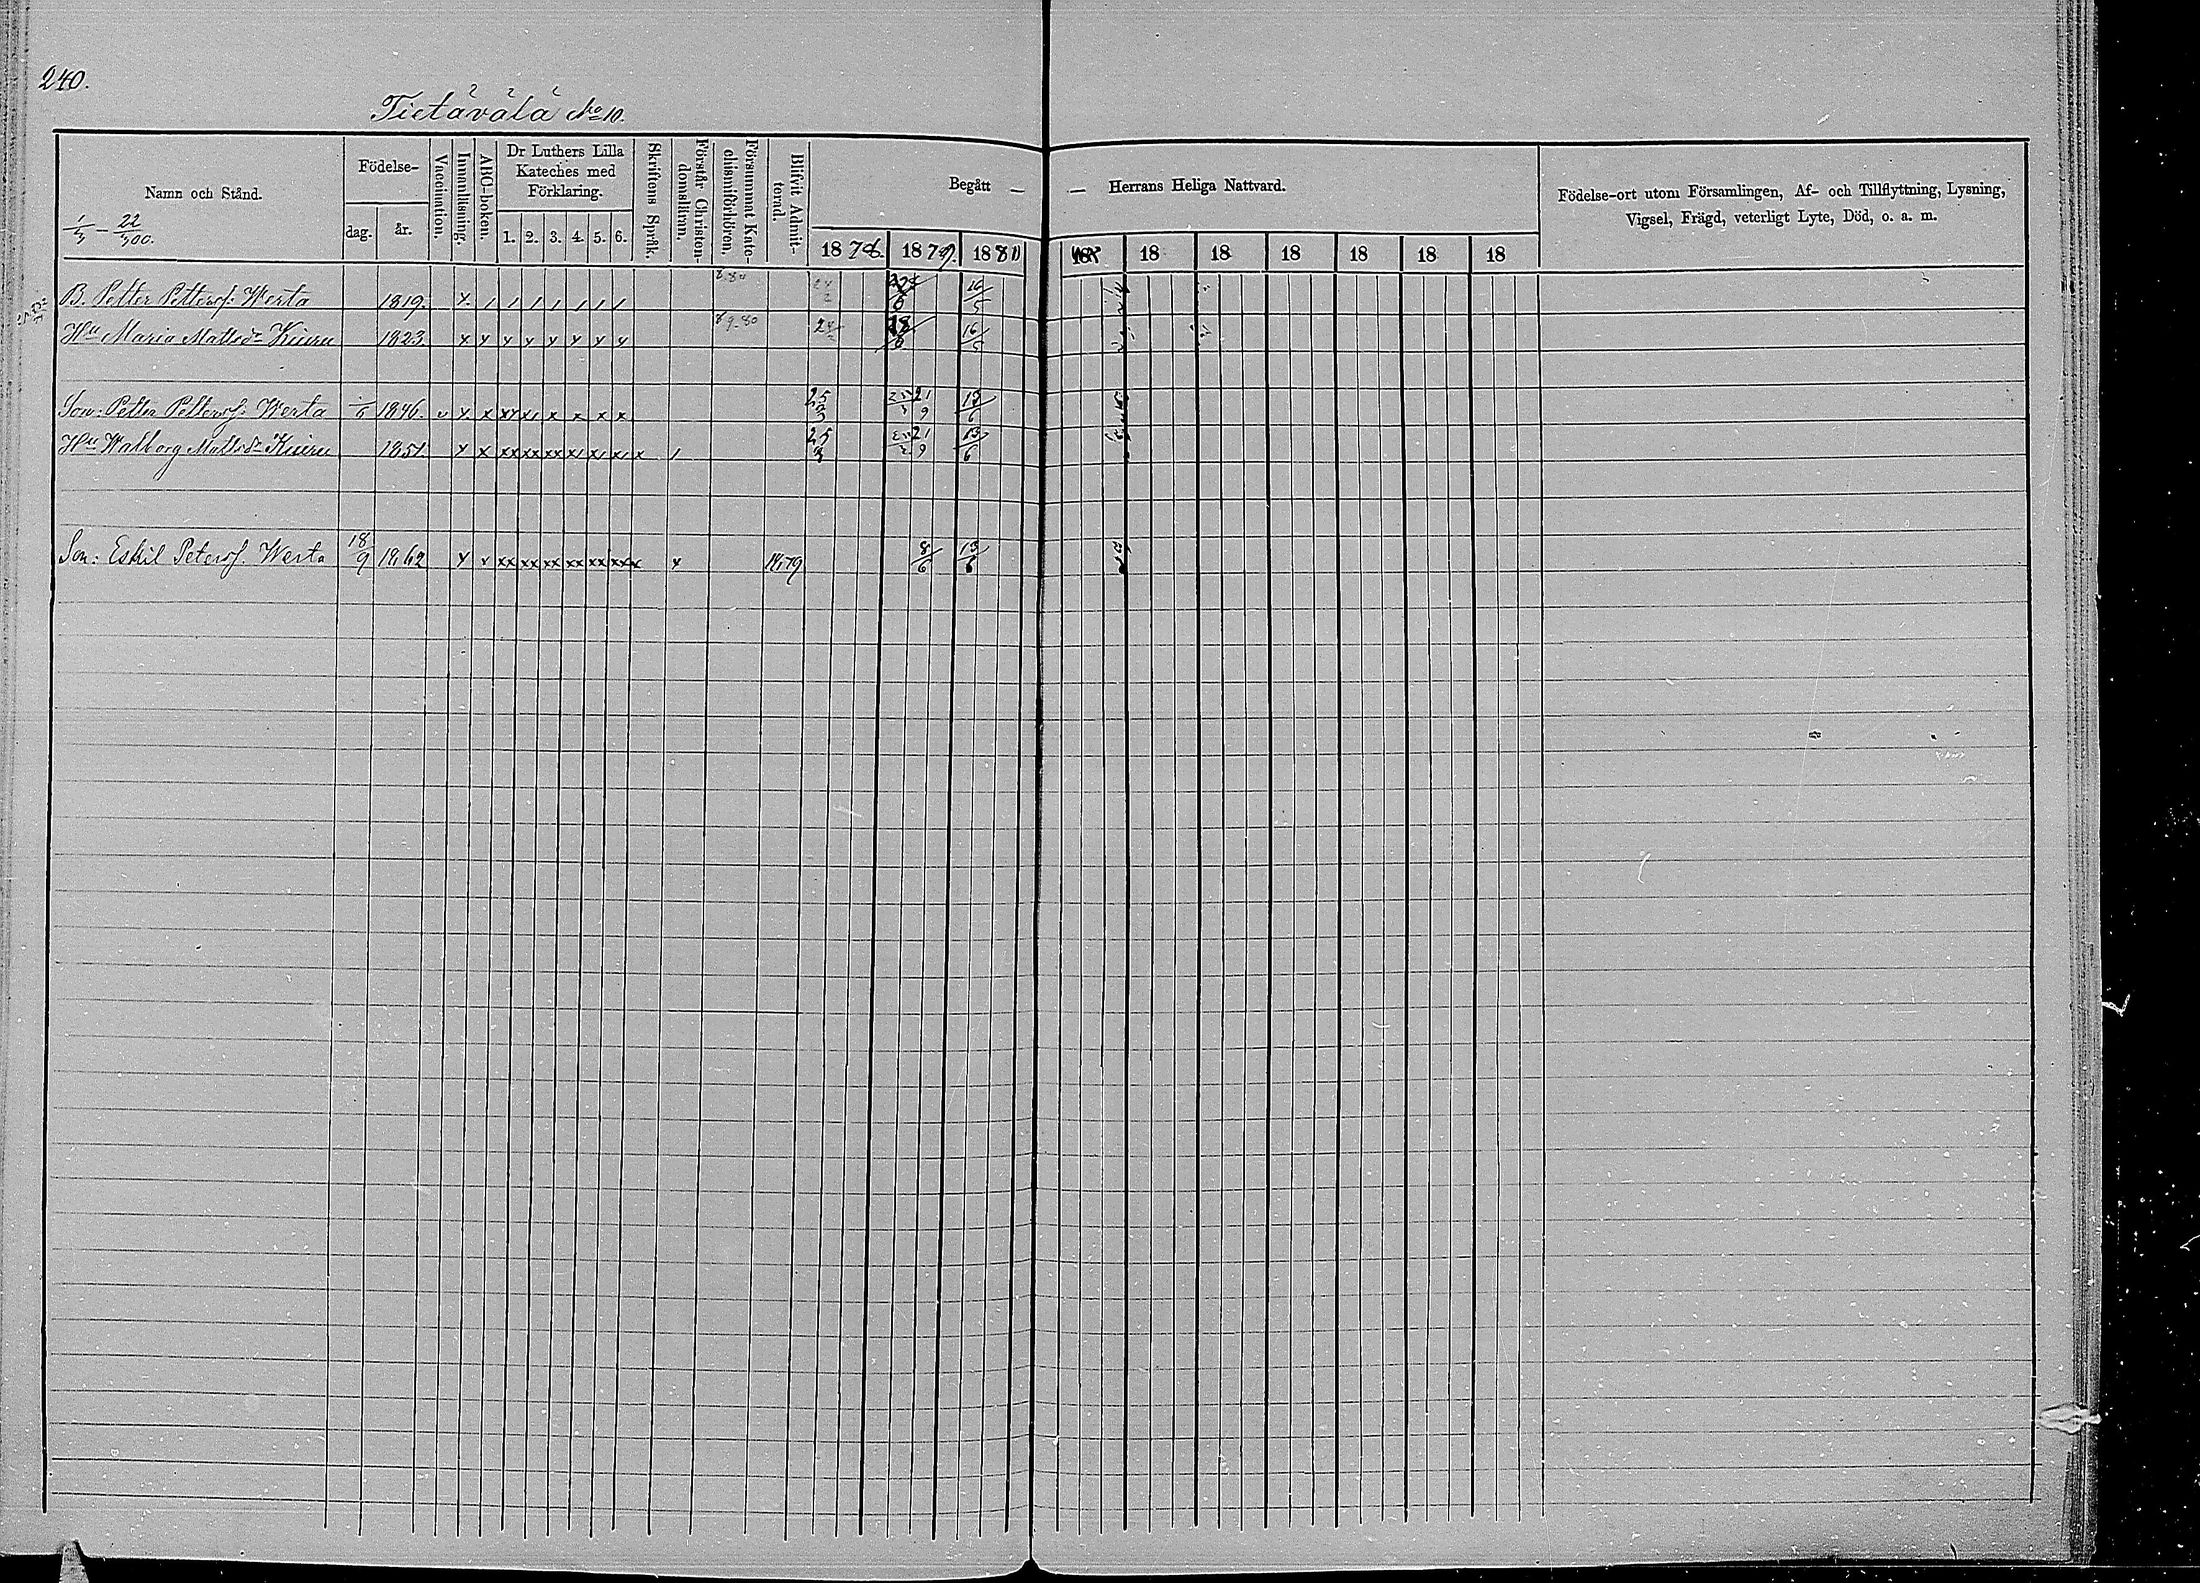 240.
Tietävälä No 10.
Namn och Stånd.
1/3 – 22/300.
Födelse-
dag.
år.
Vaccination.
Innanläsning.
ABC-boken.
Dr Luthers Lilla
Kateches med
Förklaring.
1. 2. 3. 4. 5. 6.
Skriftens Språk.
Förstår Christen-
domsläran.
Försummat Kate-
chismiförhören.
Blifvit Admit-
terad.
Begått — — Herrans Heliga Nattvard.
1878. 1879. 1880 18 18 18 18 18 18
Födelse-ort utom Församlingen, Af- och Tillflyttning, Lysning,
Vigsel, Frägd, veterligt Lyte, Död, o. a. m.
B. Petter Petterss: Werta 1819. 16/5
Hu Maria Mattsdr Kiuru 1823. 79.80 18/6 16/5
Son: Petter Petterss: Werta 1846. v 25/3 21/9 13/6
Hu Walborg Mattsdr Kiuru 1851 25/3 21/9 13/6
Son: Eskil Peterss. Werta 18/9 1862 79 8/6 13/6